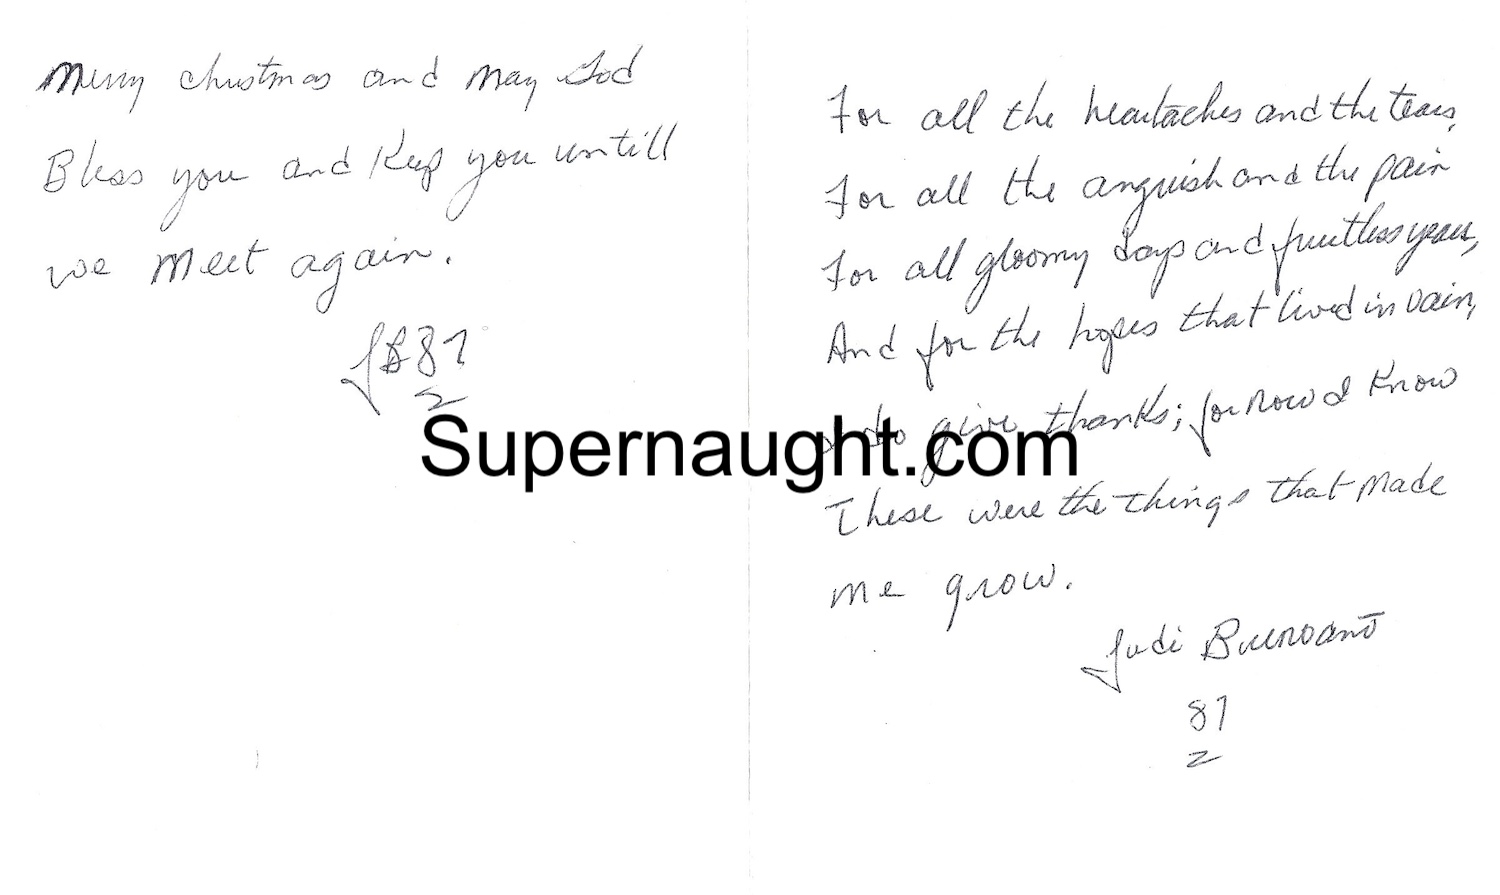 Merry christmas and may God
Bless you and Keep you untill
we meet again.
JB 87
For all the heartaches and the tears,
For all the anguish and the pain
For all gloomy days and fruitless years,
And for the hopes that lived in vain,
I do give thanks; for now I know
These were the things that made
me grow.
Judi Buenoano
87
Supernaught.com